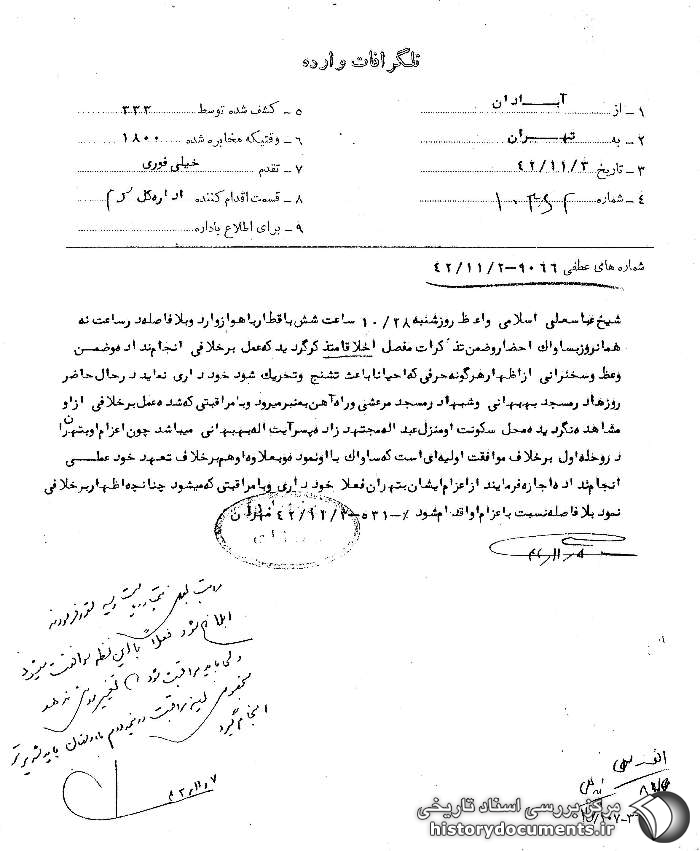 تلگرافات وارده
۱ ـ از آبادان
۲ ـ به تهران
۳ ـ تاریخ ۴۲/۱۱/۳
۴ ـ شماره
۵ ـ کشف شده توسط ۳۳۳
۶ ـ وقتیکه مخابره شده ۱۸۰۰
۷ ـ تقدم خیلی فوری
۸ ـ قسمت اقدام کننده اداره کل سوم
۹ ـ برای اطلاع باداره
شماره های عطفی ۹۰۶۶-۴۲/۱۱/۲
شیخ عباسعلی اسلامی واعظ روز شنبه ۱۰/۲۸ ساعت شش با قطار باهواز وارد و بلافاصله در ساعت نه
همانروز بساواک احضار و ضمن تذکرات مفصل اخلاقا متذکر گردید که عمل برخلافی انجام نداده و ضمن
وعظ و سخنرانی از اظهار هرگونه حرفی که احیانا باعث تشنج و تحریک شود خودداری نماید در حال حاضر
روزها در مسجد بهبهانی و شبها در مسجد مرعشی و راه آهن به منبر میرود و با مراقبتی که شده عمل برخلافی از او
مشاهده نگردیده محل سکونت او منزل عبداله مجتهدزاده پسر آیت اله بهبهانی میباشد چون اعزام او بتهران
در وحله اول برخلاف موافقت اولیه ای است که ساواک با او نموده و بعلاوه او هم برخلاف تعهد خود عملی
انجام نداده اجازه فرمایند از اعزام ایشان بتهران فعلا خودداری و با مراقبتی که میشود چنانچه اظهار برخلافی
نمود بلافاصله نسبت باعزام او اقدام شود ٪ -۵۳۱-۴۲/۱۲/۲ مهران
ابلاغ شود فعلاً با این نظر موافقت میشود
ولی باید مراقبت شود تغییر روش ندهد
انجام گیرد
مرکز بررسی اسناد تاریخی
historydocuments.ir